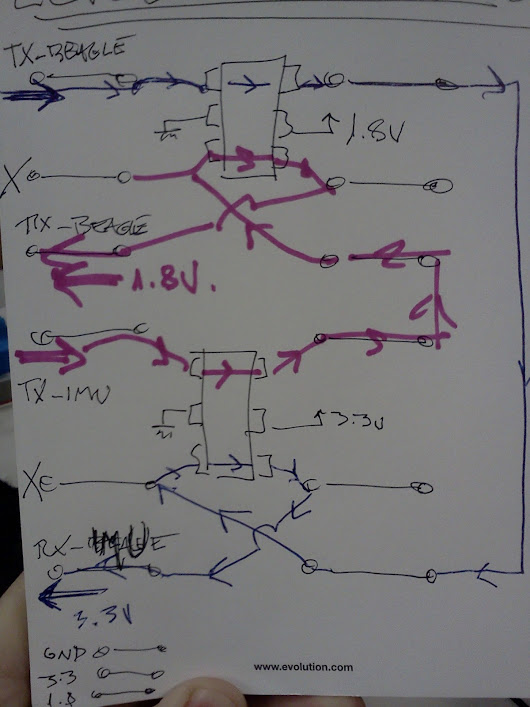 TX-BEAGLE
1.8V
X
RX-BEAGLE
1.8V.
TX-IMU
3.3V
X
RX-IMU
3.3V
www.evolution.com
GND
3.3
1.8